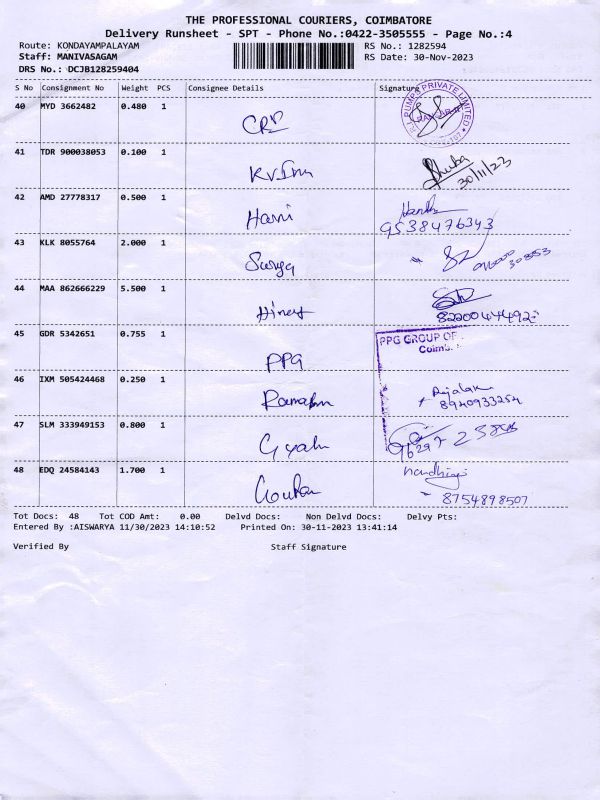 THE PROFESSIONAL COURIERS, COIMBATORE
Delivery Runsheet - SPT - Phone No.:0422-3505555 - Page No.:4
Route: KONDAYAMPALAYAM
RS No.: 1282594
Staff: MANIVASAGAM
RS Date: 30-Nov-2023
DRS No.: DCJB128259404
S No Consignment No Weight PCS Consignee Details Signature
40 MYD 3662482 0.480 1
PUMPS PRIVATE LIMITED
CRP
41 TDR 900038053 0.100 1
30/11/23
42 AMD 27778317 0.500 1
Harni
9538476343
43 KLK 8055764 2.000 1
Surya
44 MAA 862666229 5.500 1
45 GDR 5342651 0.755 1
PPG GROUP OF
PPG
46 IXM 505424468 0.250 1
8940933254
47 SLM 333949153 0.800 1
48 EDQ 24584143 1.700 1
nandhini
8754898507
Tot Docs: 48 Tot COD Amt: 0.00 Delvd Docs: Non Delvd Docs: Delvy Pts:
Entered By :AISWARYA 11/30/2023 14:10:52 Printed On: 30-11-2023 13:41:14
Verified By Staff Signature